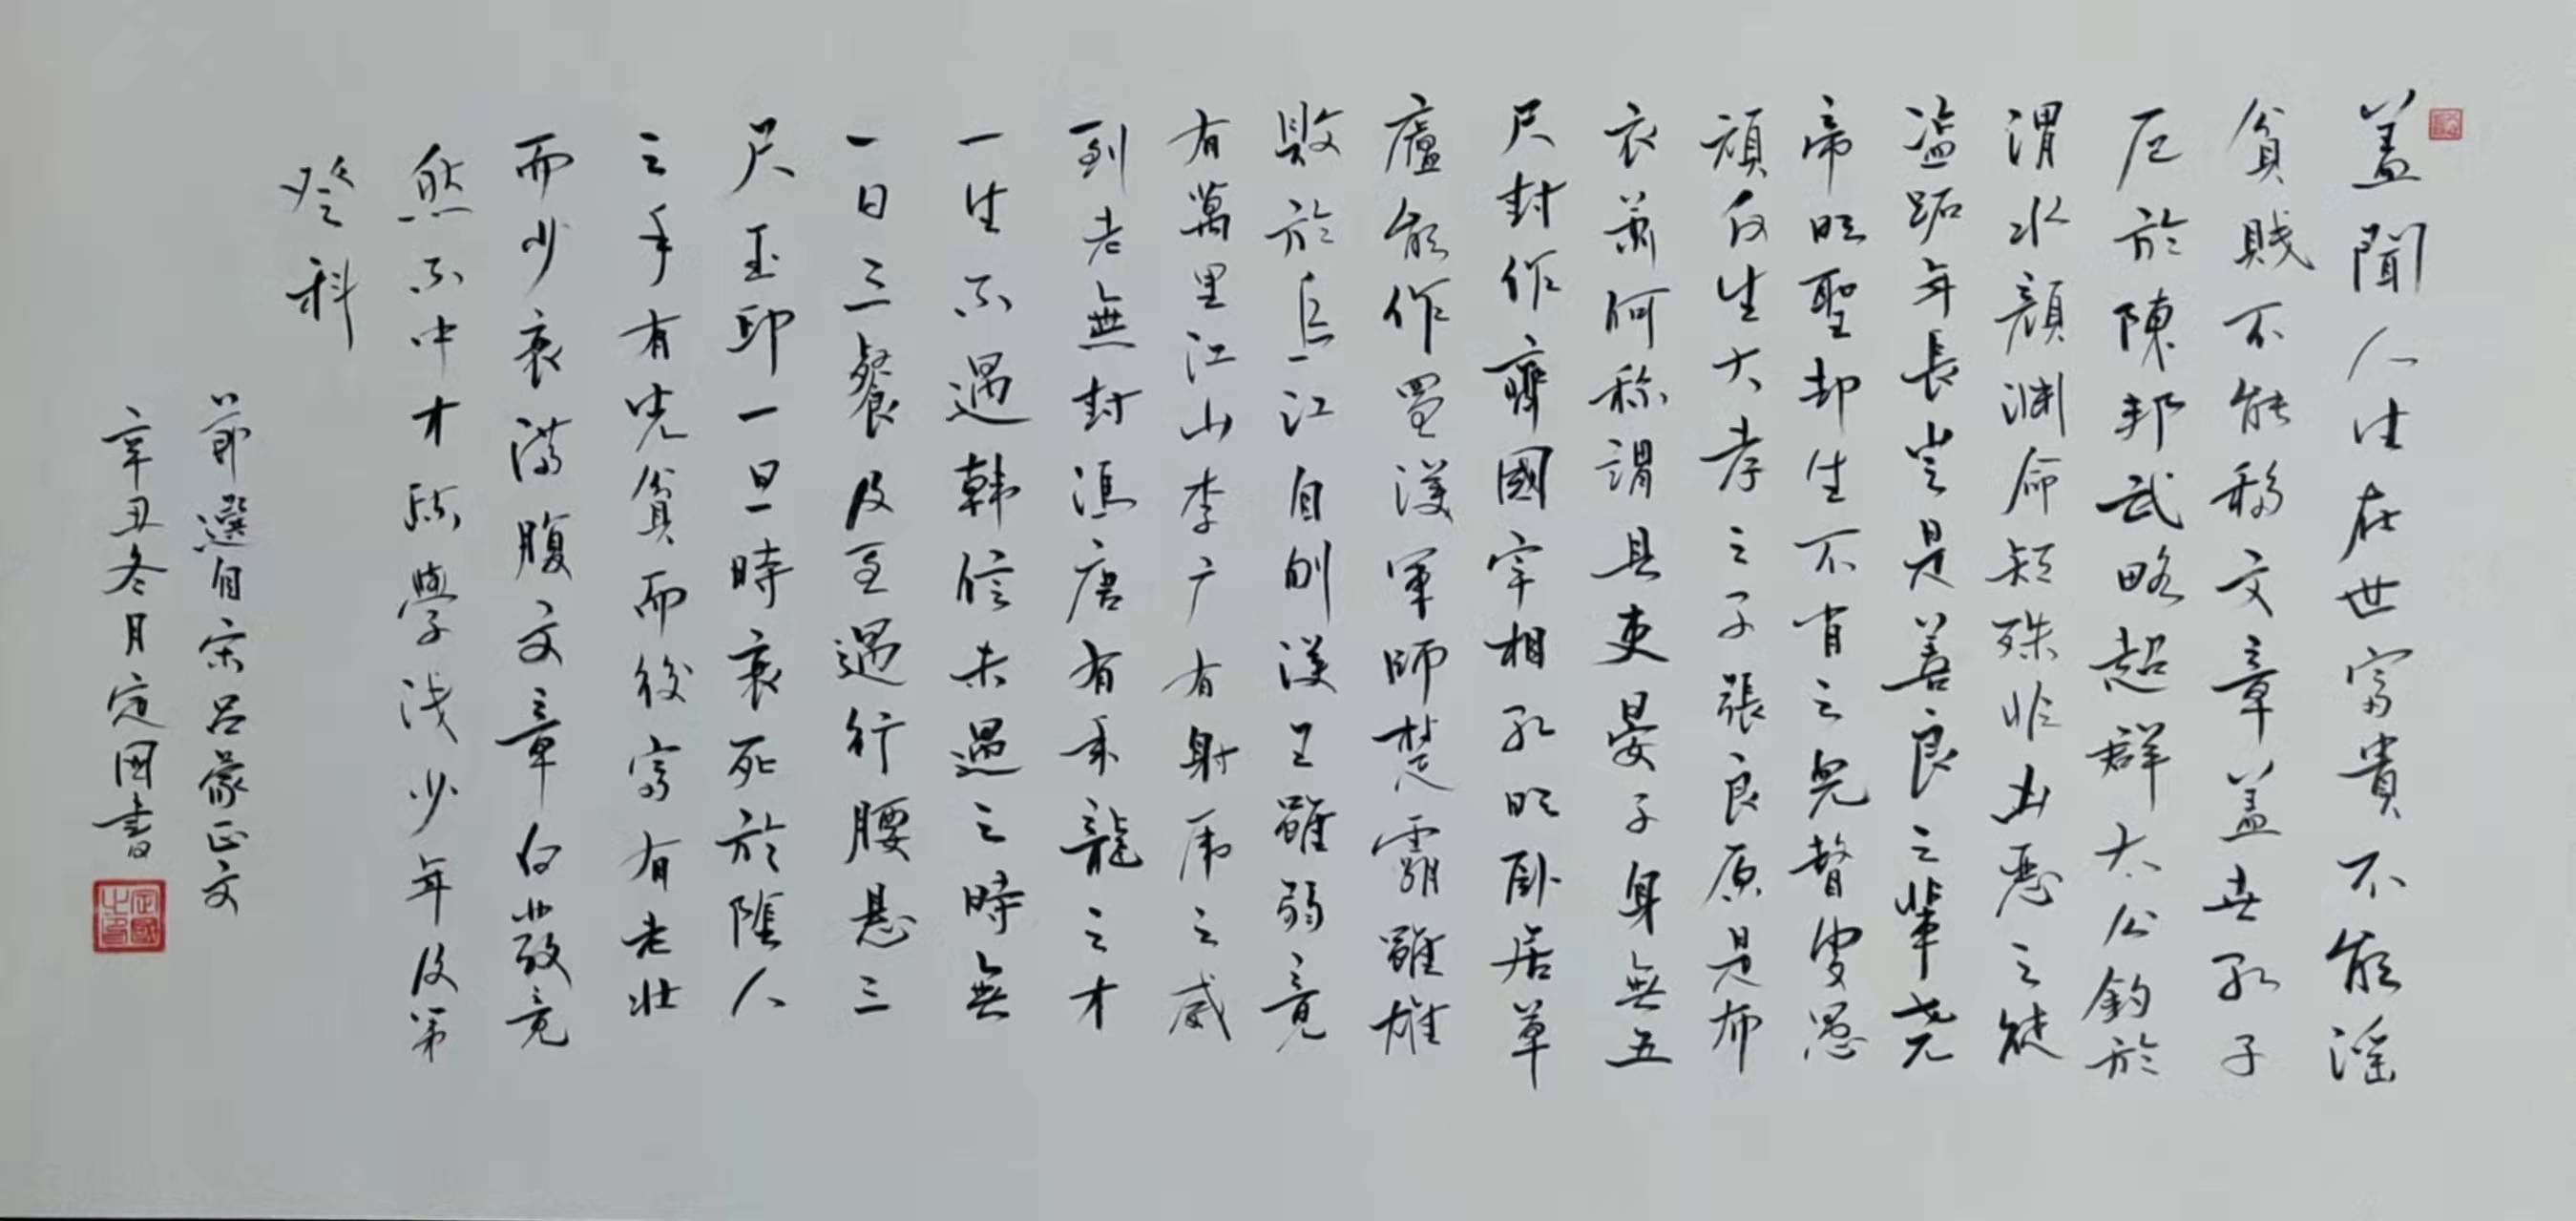 盖聞人生在世富貴不能淫
貧賤不能移文章盖世孔子
厄於陳邦武略超群太公釣於
渭水顔渊命短殊非凶恶之徒
盗跖年長豈是善良之輩尧
帝明聖却生不肖之兒瞽叟愚
頑反生大孝之子張良原是布
衣萧何称謂县吏晏子身無五
尺封作齊國宰相孔明卧居草
廬能作蜀漢軍師楚霸雖雄
敗於烏江自刎漢王雖弱竟
有萬里江山李广有射虎之威
到老無封馮唐有乘龍之才
一生不遇韩信未遇之時無
一日三餐及至遇行腰悬三
尺玉印一旦時衰死於陰人
之手有先貧而後富有老壯
而少衰满腹文章白發竟
然不中才疏學浅少年及第
登科
節選自宋呂蒙正文
辛丑冬月定国書
定國之印